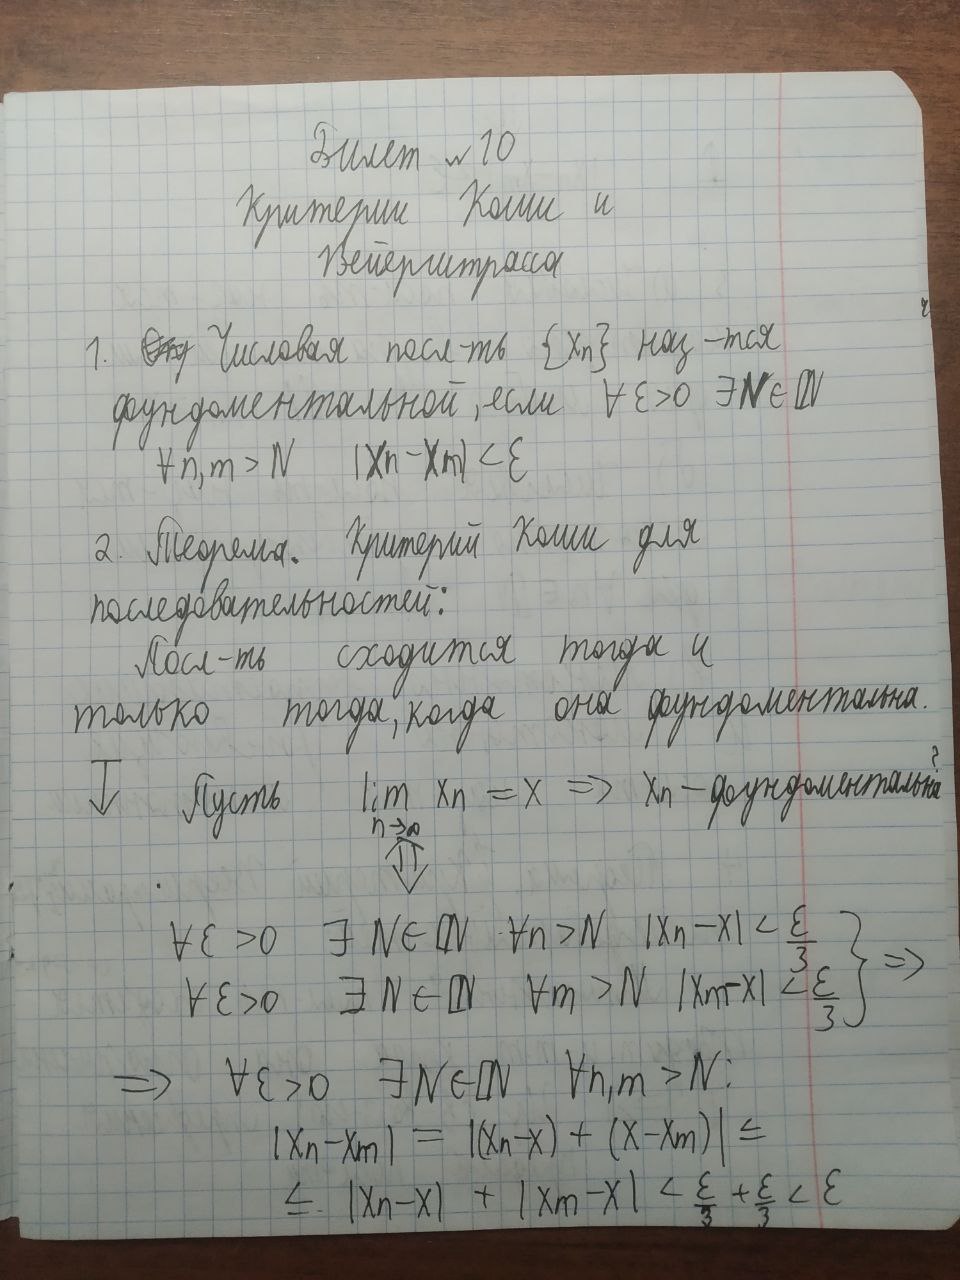 Билет №10
Критерии Коши и
Вейерштрасса
1. Числовая посл-ть {Xn} наз-тся
фундоментальной, если ∀ε>0 ∃N∈ℕ
∀n,m>N |Xn-Xm|<ε
2. Теорема. Критерий Коши для
последовательностей:
Посл-ть сходится тогда и
только тогда, когда она фундоментальна.
Пусть lim Xn = X => Xn - фундоментальна?
n→∞
⇕
∀ε>0 ∃N∈ℕ ∀n>N |Xn-X|<ε/3
∀ε>0 ∃N∈ℕ ∀m>N |Xm-X|<ε/3 } =>
=> ∀ε>0 ∃N∈ℕ ∀n,m>N:
|Xn-Xm| = |(Xn-X)+(X-Xm)| ≤
≤ |Xn-X| + |Xm-X| < ε/3 + ε/3 < ε